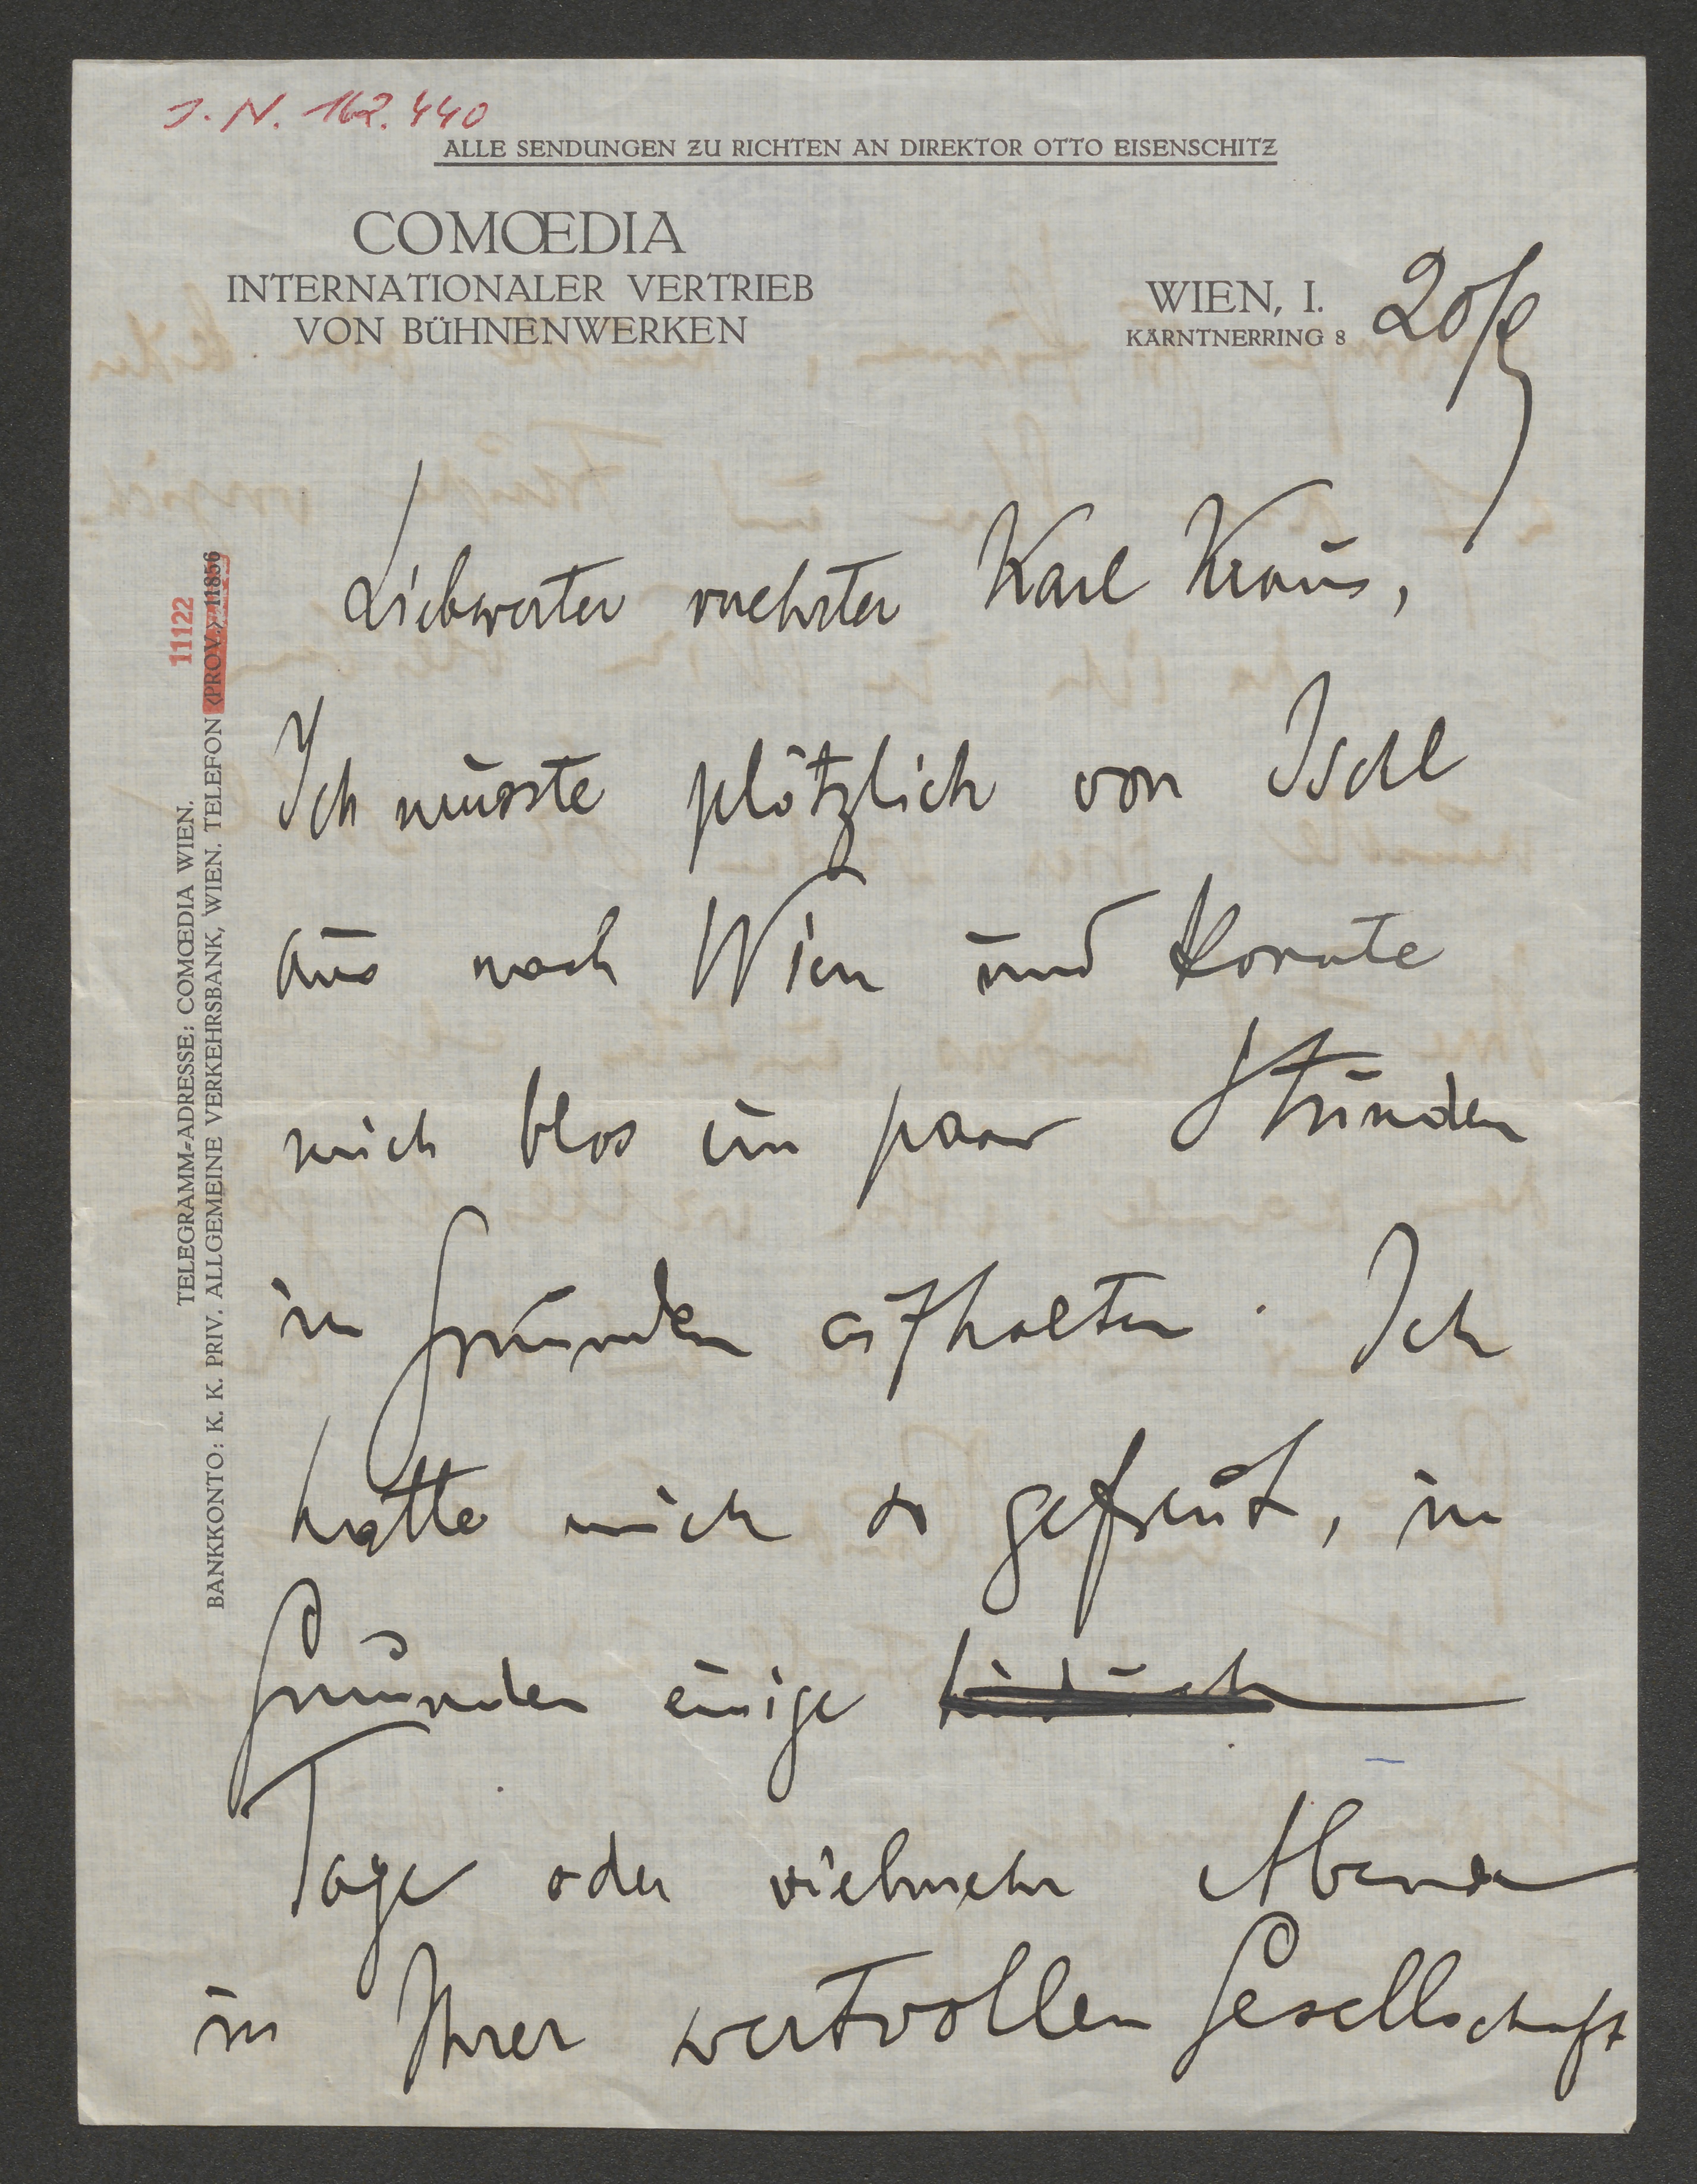 J. N. 162.440
ALLE SENDUNGEN ZU RICHTEN AN DIREKTOR OTTO EISENSCHITZ
COMŒDIA
INTERNATIONALER VERTRIEB
VON BÜHNENWERKEN
WIEN, I.
KÄRNTNERRING 8
20/9
11122
TELEGRAMM-ADRESSE: COMŒDIA WIEN.
BANKKONTO: K. K. PRIV. ALLGEMEINE VERKEHRSBANK, WIEN. TELEFON <PROV.> 11856
Liebwerter verehrter Karl Kraus,
Ich musste plötzlich von Ischl
aus nach Wien und konnte
mich blos ein paar Stunden
in Gmunden aufhalten. Ich
hatte mich so gefreut, in
Gmunden einige
Tage oder vielmehr Abende
in Ihrer wertvollen Gesellschaft